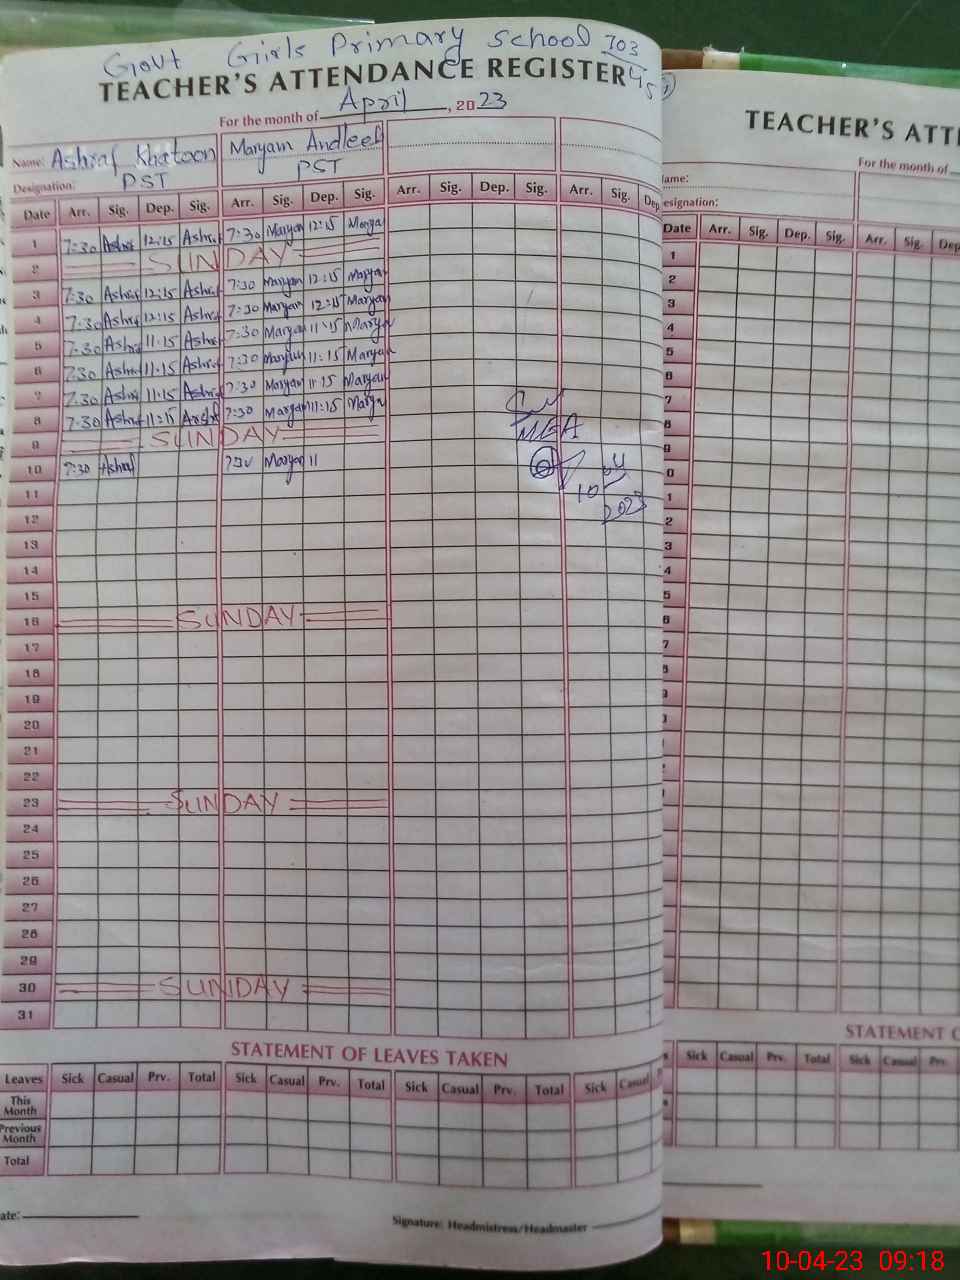 Govt Girls Primary school 703
TEACHER'S ATTENDANCE REGISTER
For the month of April, 2023
Name: Ashraf Khatoon Maryam Andleeb
Designation: PST PST
Date Arr. Sig. Dep. Sig. Arr. Sig. Dep. Sig. Arr. Sig. Dep. Sig. Arr. Sig. Dep
1 7:30 Ashraf 12:15 Ashraf 7:30 Maryam 12:15 Maryam
2 SUNDAY
3 7:30 Ashraf 12:15 Ashraf 7:30 Maryam 12:15 Maryam
4 7:30 Ashraf 12:15 Ashraf 7:30 Maryam 12:15 Maryam
5 7:30 Ashraf 11:15 Ashraf 7:30 Maryam 11:15 Maryam
6 7:30 Ashraf 11:15 Ashraf 7:30 Maryam 11:15 Maryam
7 7:30 Ashraf 11:15 Ashraf 7:30 Maryam 11:15 Maryam
8 7:30 Ashraf 11:15 Ashraf 7:30 Maryam 11:15 Maryam
9 SUNDAY
10 7:30 Ashraf 7:30 Maryam 11
11
12
13
14
15
16 SUNDAY
17
18
19
20
21
22
23 SUNDAY
24
25
26
27
28
29
30 SUNDAY
31
MEA
10
04
2023
STATEMENT OF LEAVES TAKEN
Leaves Sick Casual Prv. Total Sick Casual Prv. Total Sick Casual Prv. Total Sick Casual
This Month
Previous Month
Total
ate:
Signature: Headmistress/Headmaster
TEACHER'S ATTE
For the month of
ame:
esignation:
Date Arr. Sig. Dep. Sig. Arr. Sig. Dep
1
2
3
4
5
6
7
8
9
0
1
2
3
4
5
6
7
8
9
STATEMENT O
s Sick Casual Prv. Total Sick Casual Prv.
10-04-23 09:18